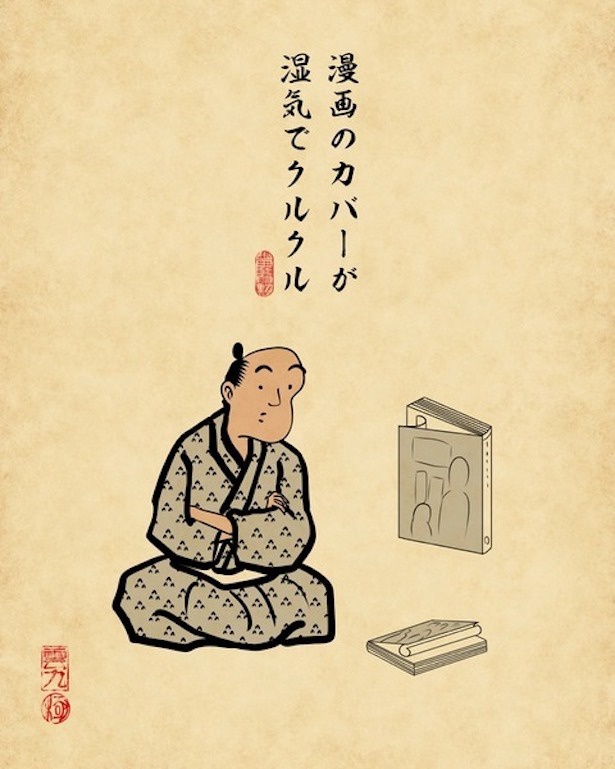 漫画のカバーが
湿気でクルクル